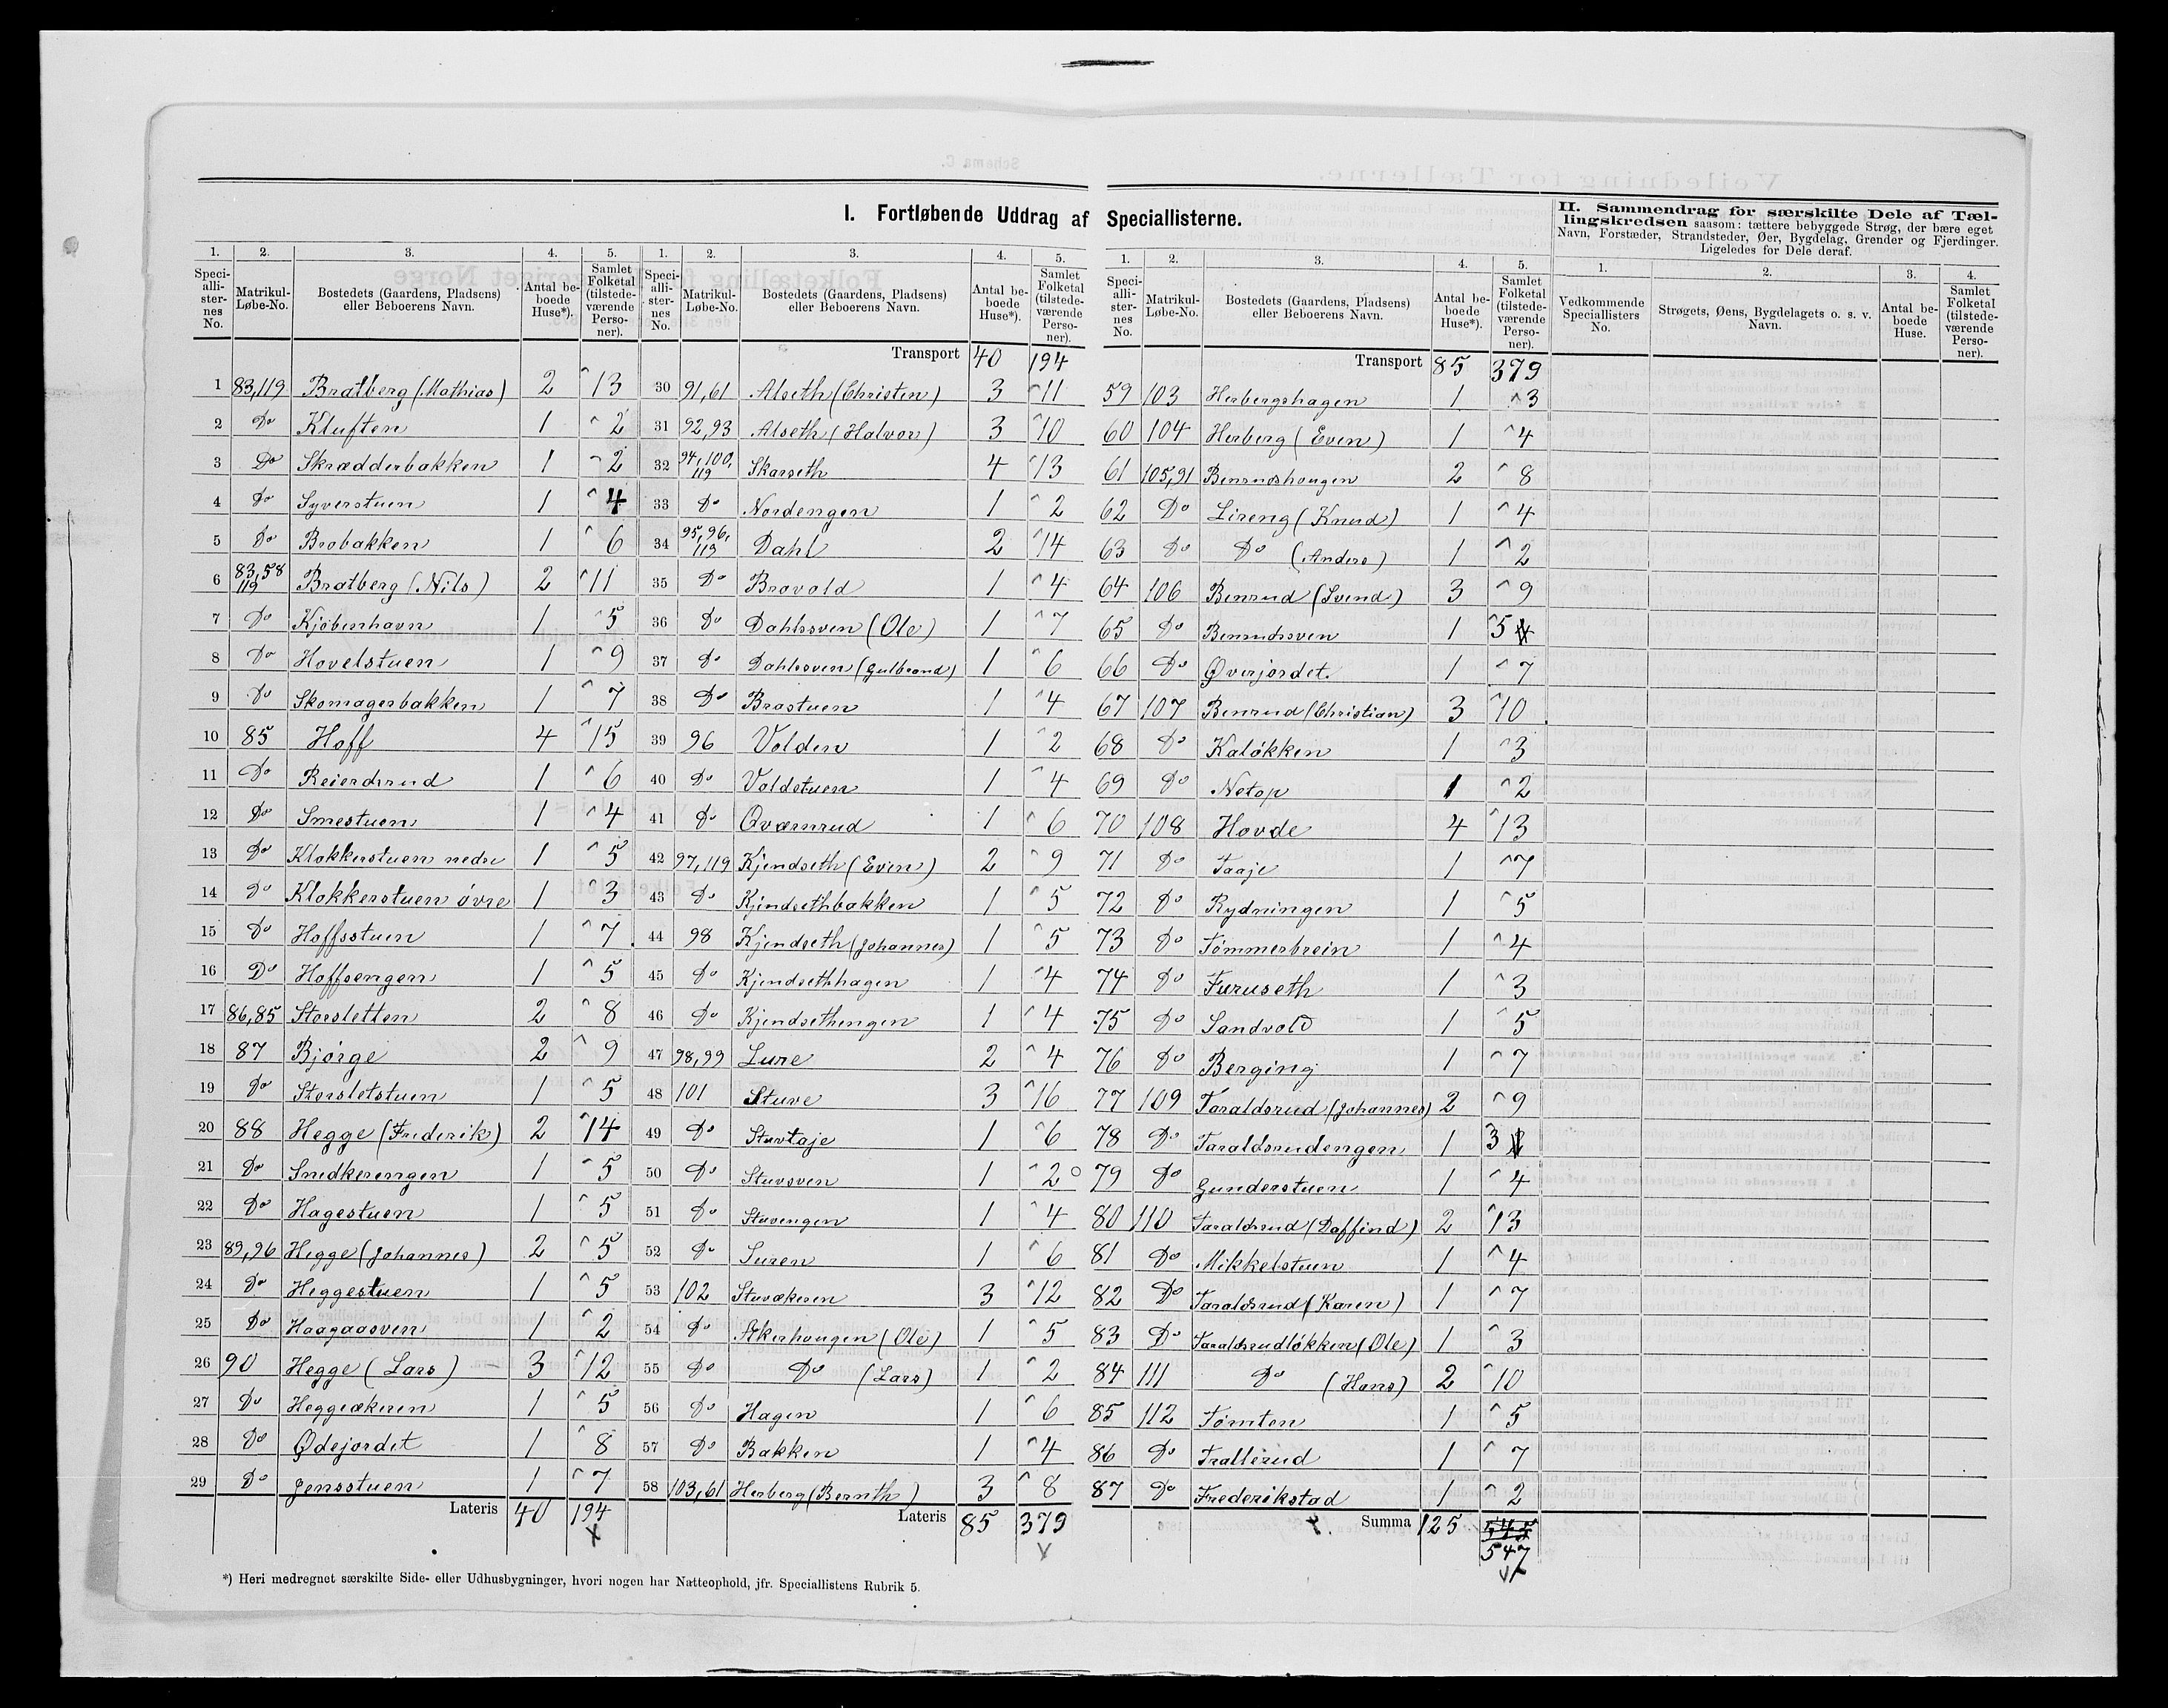 I. Fortløbende Uddrag af Speciallisterne.
II. Sammendrag for særskilte Dele af Tæl-
lingskredsen saasom: tættere bebyggede Strøg, der bære eget
Navn, Forstæder, Strandsteder, Øer, Bygdelag, Grender og Fjerdinger.
Ligeledes for Dele deraf.
1. 2. 3. 4. 5.
Speci-alli-ster-nes No. Matrikul-Løbe-No. Bostedets (Gaardens, Pladsens) eller Beboerens Navn. Antal be-boede Huse*). Samlet Folketal (tilstede-værende Perso-ner).
1 83,119 Bratberg (Mathias) 2 13
2 Do Kluften 1 2
3 Do Skrædderbakken 1 2
4 Do Syverstuen 1 4
5 Do Brobakken 1 6
6 83,58 119 Bratberg (Nils) 2 11
7 Do Kjøbenhavn 1 5
8 Do Hovelstuen 1 9
9 Do Skomagerbakken 1 7
10 85 Hoff 4 15
11 Do Reierdsrud 1 6
12 Do Smestuen 1 4
13 Do Klokkerstuen nedre 1 5
14 Do Klokkerstuen øvre 1 3
15 Do Hoffsstuen 1 7
16 Do Hoffsengen 1 5
17 86,85 Storsletten 2 8
18 87 Bjørge 2 9
19 Do Storsletstuen 1 5
20 88 Hegge (Frederik) 2 14
21 Do Snedkerengen 1 5
22 Do Hagestuen 1 5
23 89,96 Hegge (Johannes) 2 5
24 Do Heggestuen 1 5
25 Do Haagaasven 1 2
26 90 Hegge (Lars) 3 12
27 Do Heggeækeren 1 5
28 Do Ødejordet 1 8
29 Do Jensstuen 1 7
Lateris 40 194
1. 2. 3. 4. 5.
Speci-alli-ster-nes No. Matrikul-Løbe-No. Bostedets (Gaardens, Pladsens) eller Beboerens Navn. Antal be-boede Huse*). Samlet Folketal (tilstede-værende Perso-ner).
Transport 40 194
30 91,61 Alseth (Christen) 3 11
31 92,93 Alseth (Halvor) 3 10
32 94,100, 119 Skarseth 4 13
33 Do Nordengen 1 2
34 95,96, 119 Dahl 2 14
35 Do Brovold 1 4
36 Do Dahlssven (Ole) 1 7
37 Do Dahlssven (Gulbrand) 1 6
38 Do Brostuen 1 4
39 96 Volden 1 2
40 Do Voldstuen 1 4
41 Do Oværnrud 1 6
42 97,119 Kjendseth (Even) 2 9
43 Do Kjendsethbakken 1 5
44 98 Kjendseth (Johannes) 1 5
45 Do Kjendsethhagen 1 4
46 Do Kjendsethengen 1 4
47 98,99 Lure 2 4
48 101 Stuve 3 16
49 Do Stuvtaje 1 6
50 Do Stuvsven 1 2
51 Do Stuvengen 1 4
52 Do Suren 1 6
53 102 Stuvækeren 3 12
54 Do Akerhougen (Ole) 1 5
55 Do Do (Lars) 1 2
56 Do Hagen 1 6
57 Do Bakken 1 4
58 103,61 Herberg (Bernth) 3 8
Lateris 85 379
1. 2. 3. 4. 5.
Speci-alli-ster-nes No. Matrikul-Løbe-No. Bostedets (Gaardens, Pladsens) eller Beboerens Navn. Antal be-boede Huse*). Samlet Folketal (tilstede-værende Perso-ner).
Transport 85 379
59 103 Herbergshagen 1 3
60 104 Herberg (Even) 1 4
61 105,91 Benrudshougen 2 8
62 Do Lireng (Knud) 1 4
63 Do Do (Anders) 1 2
64 106 Benrud (Svend) 3 9
65 Do Benrudssven 1 5
66 Do Øverjordet. 1 7
67 107 Benrud (Christian) 3 10
68 Do Kaløkken 1 3
69 Do Netop 1 2
70 108 Hovde 4 13
71 Do Taaje 1 7
72 Do Rydningen 1 5
73 Do Tømmerbrein 1 4
74 Do Furuseth 1 3
75 Do Sandvold 1 5
76 Do Berging 1 7
77 109 Taraldsrud (Johannes) 2 9
78 Do Taraldsrudengen 1 3
79 Do Gunderstuen 1 4
80 110 Taraldsrud (Daffind) 2 13
81 Do Mikkelstuen 1 4
82 Do Taraldsrud (Karen) 1 7
83 Do Taraldsrudløkken (Ole) 1 3
84 111 Do (Hans) 2 10
85 112 Tømten 1 5
86 Do Trallerud 1 7
87 Do Frederikstad 1 2
Summa 125 545
547
1. 2. 3. 4.
Vedkommende Speciallisters No. Strøgets, Øens, Bygdelagets o. s. v. Navn. Antal be-boede Huse. Samlet Folketal (tilstede-værende Perso-ner).
*) Heri medregnet særskilte Side- eller Udhusbygninger, hvori nogen har Natteophold, jfr. Speciallistens Rubrik 5.